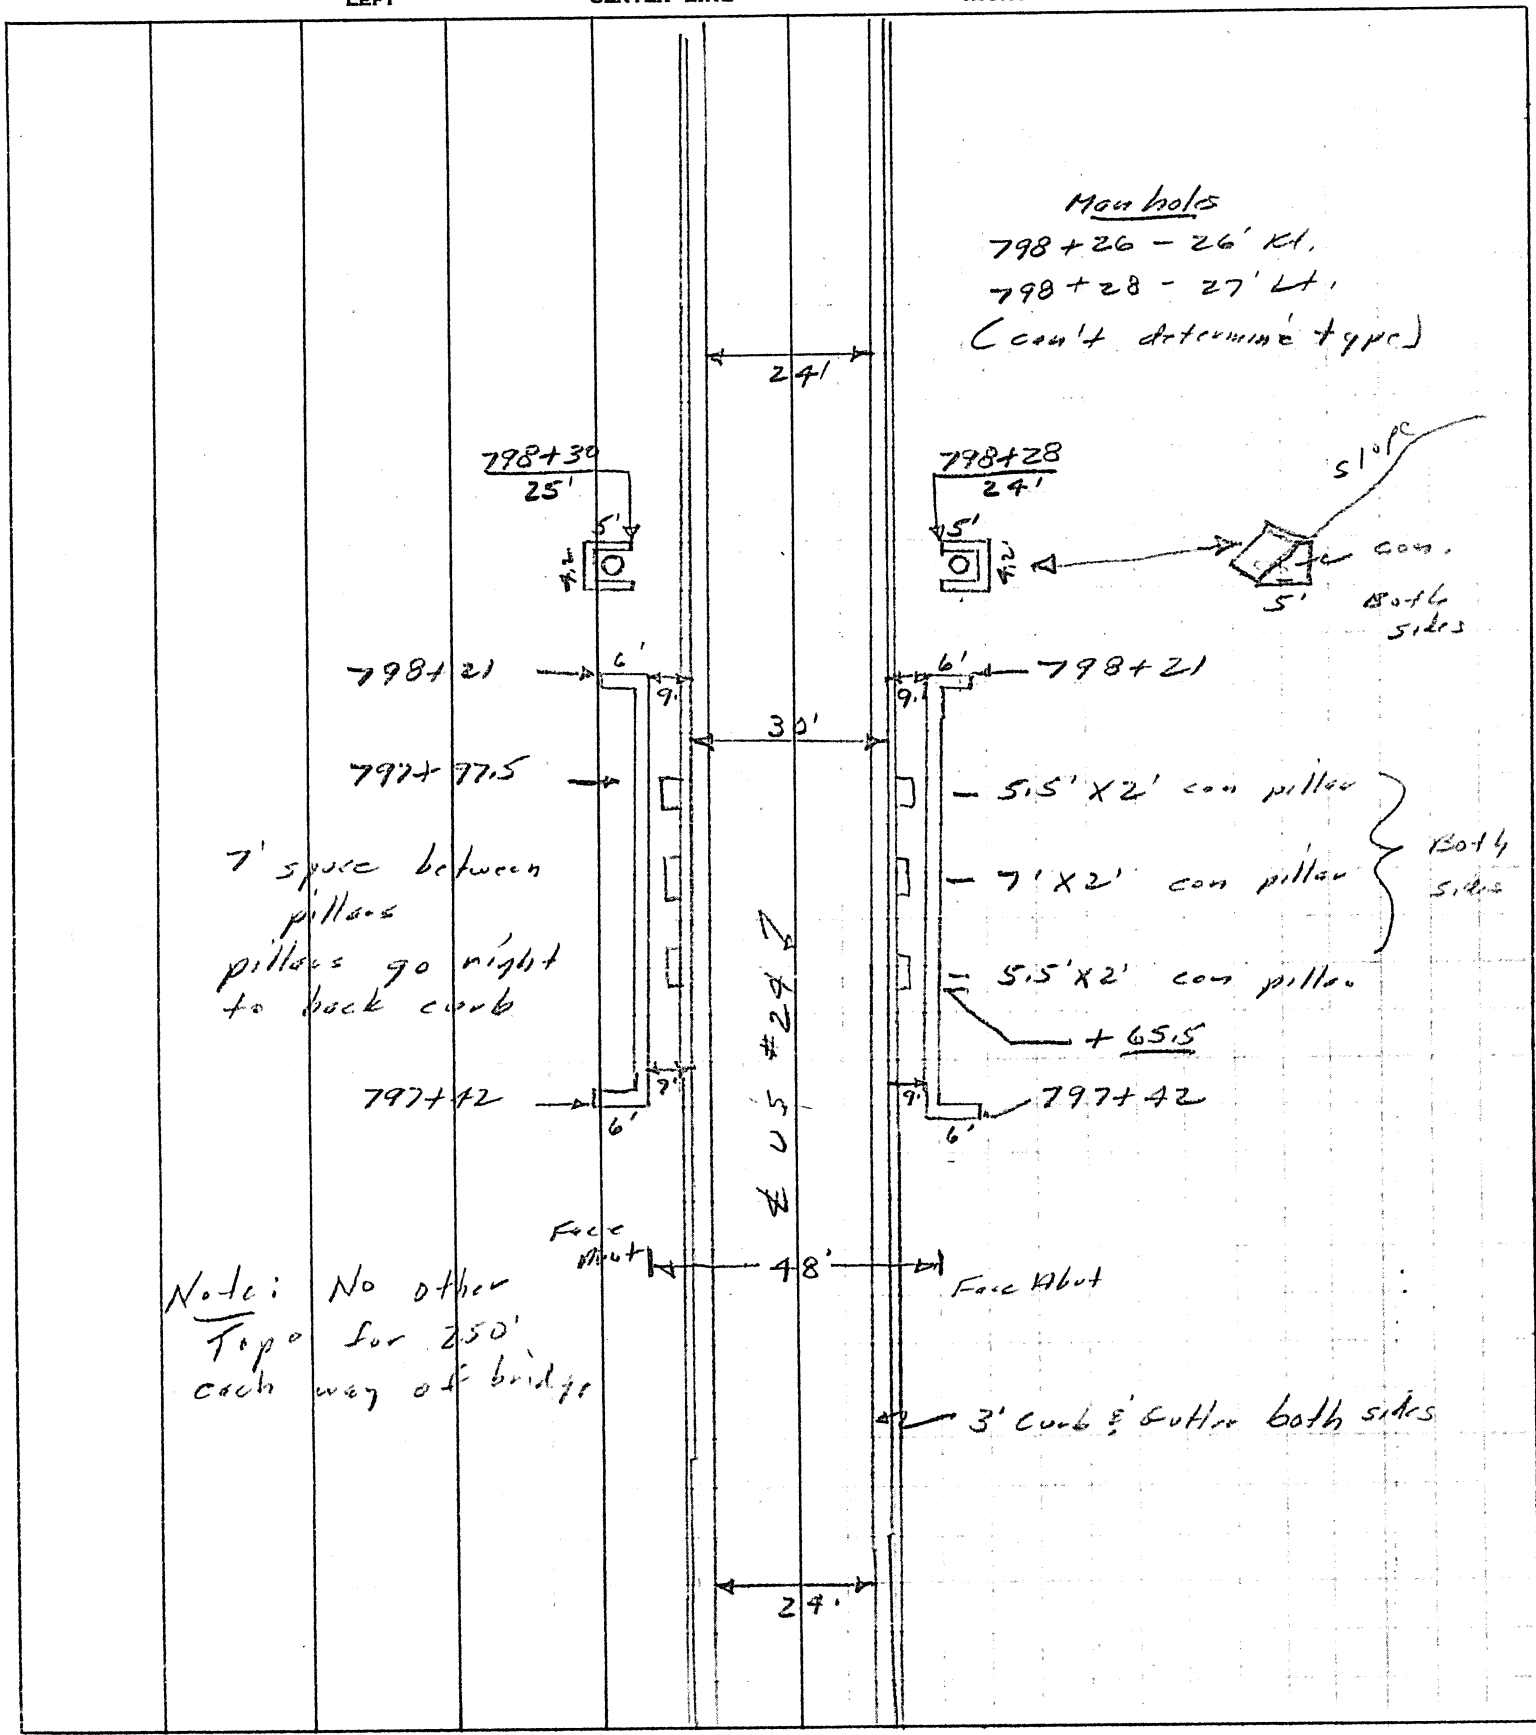 Manholes
798+26 - 26' Rt.
798+28 - 27' Lt.
(can't determine type)
24'
798+30
25'
5'
4.2'
798+28
24'
5'
4.2'
slope
con.
5'
Both
sides
798+21
6'
9'
6'
9'
798+21
30'
797+77.5
5.5' X 2' con pillar
7' X 2' con pillar
Both
sides
5.5' X 2' con pillar
+ 65.5
7' space between
pillars
pillars go right
to back curb
℄ US #24
797+42
6'
9'
6'
797+42
Face
Abut
48'
Face Abut
Note: No other
Topo for 250'
each way of bridge
3' curb & Gutter both sides
24'